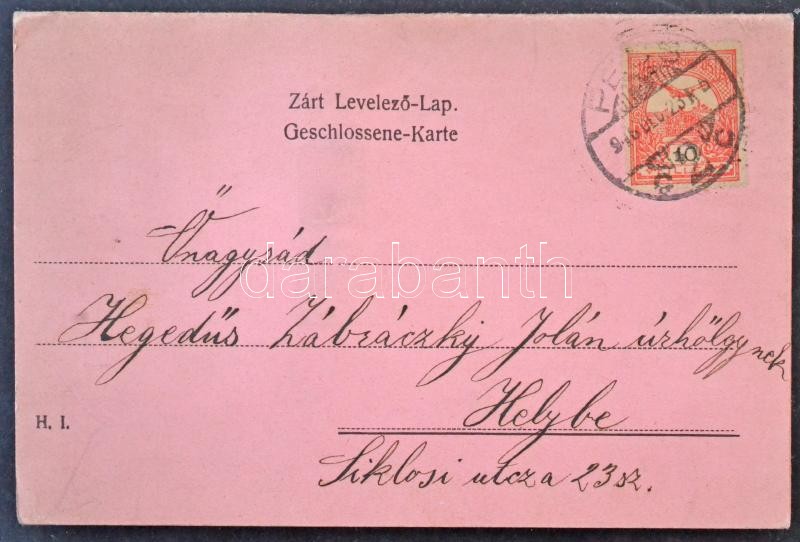 Zárt Levelező-Lap.
Geschlossene-Karte
10
Őnagysád
darabanth
Hegedűs Zábráczky Jolán úrhölgynek
Helybe
H. I.
Siklosi utcza 23 sz.